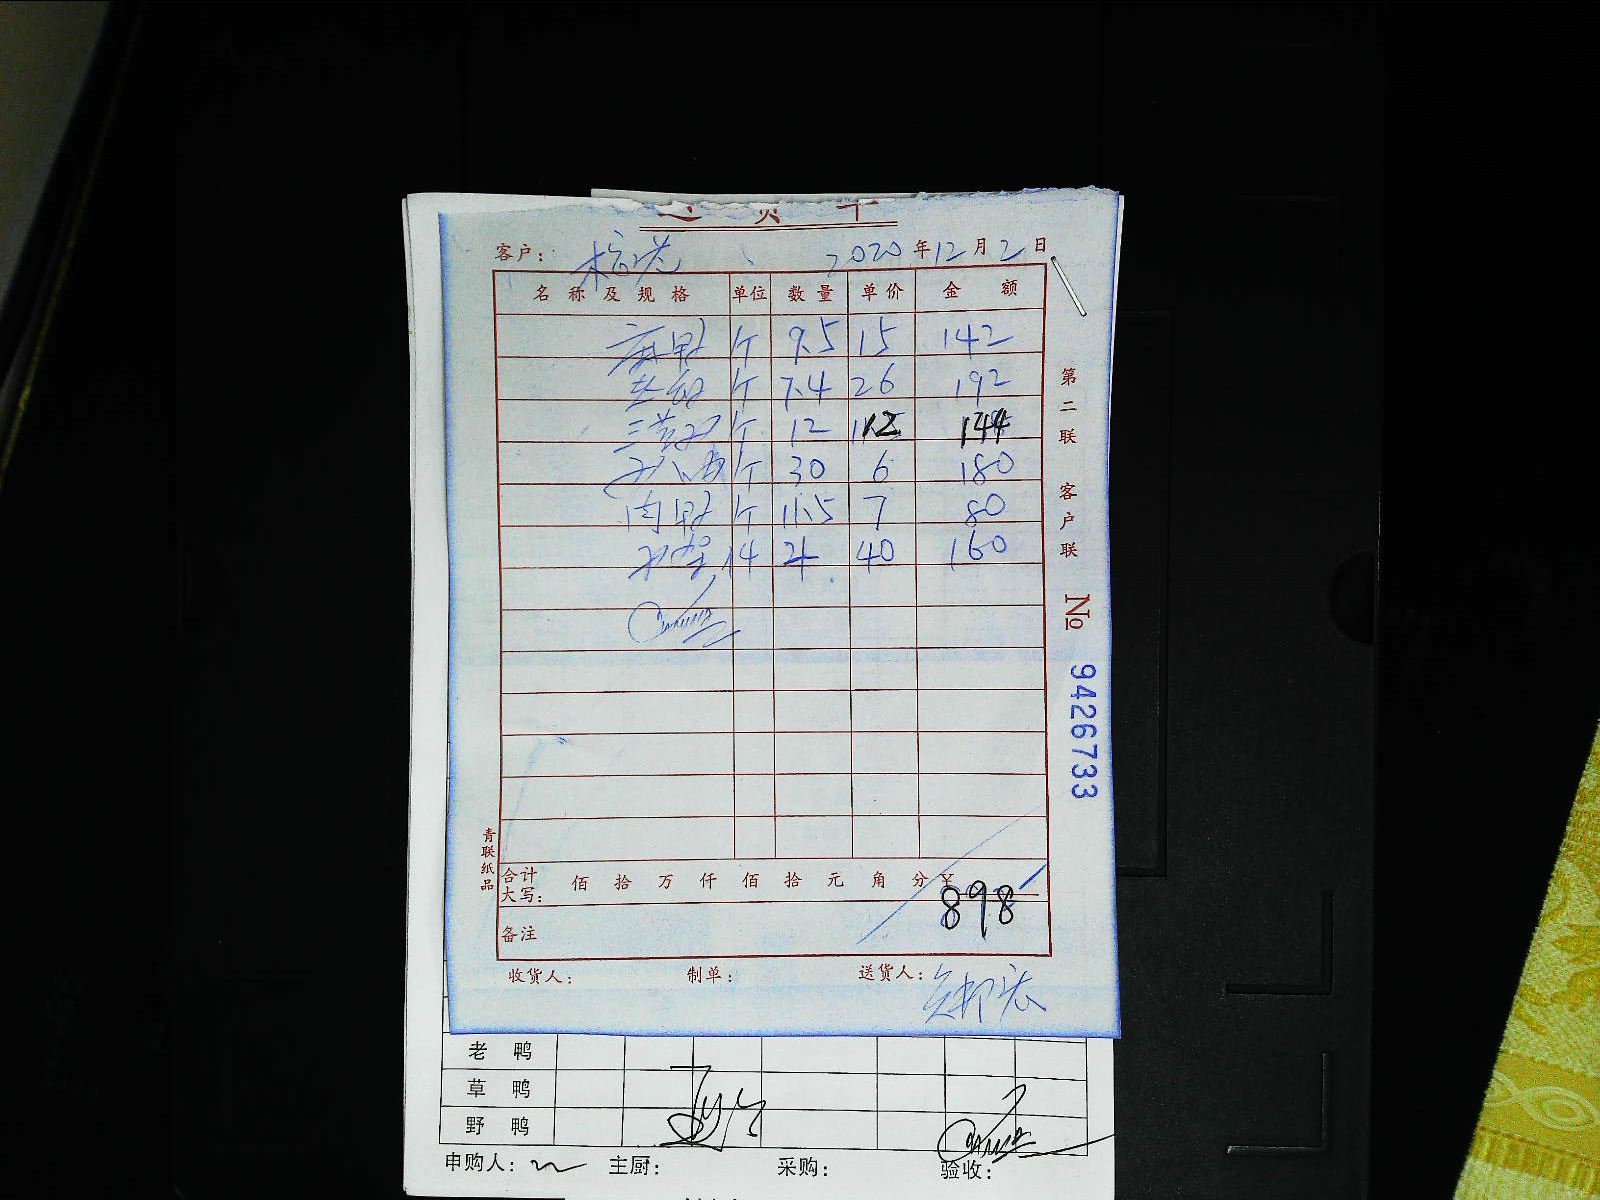 送货单
客户： 2020年12月2日
名称及规格 单位 数量 单价 金额
麻鸭 个 9.5 15 142
个 7.4 26 192
三黄 个 12 12 144
个 30 6 180
肉鸭 个 11.5 7 80
14 4 40 160
合计大写： 佰 拾 万 仟 佰 拾 元 角 分 ¥ 898
备注
收货人： 制单： 送货人：
第二联 客户联
№ 9426733
青联纸品
老鸭
草鸭
野鸭
申购人： 主厨： 采购： 验收：